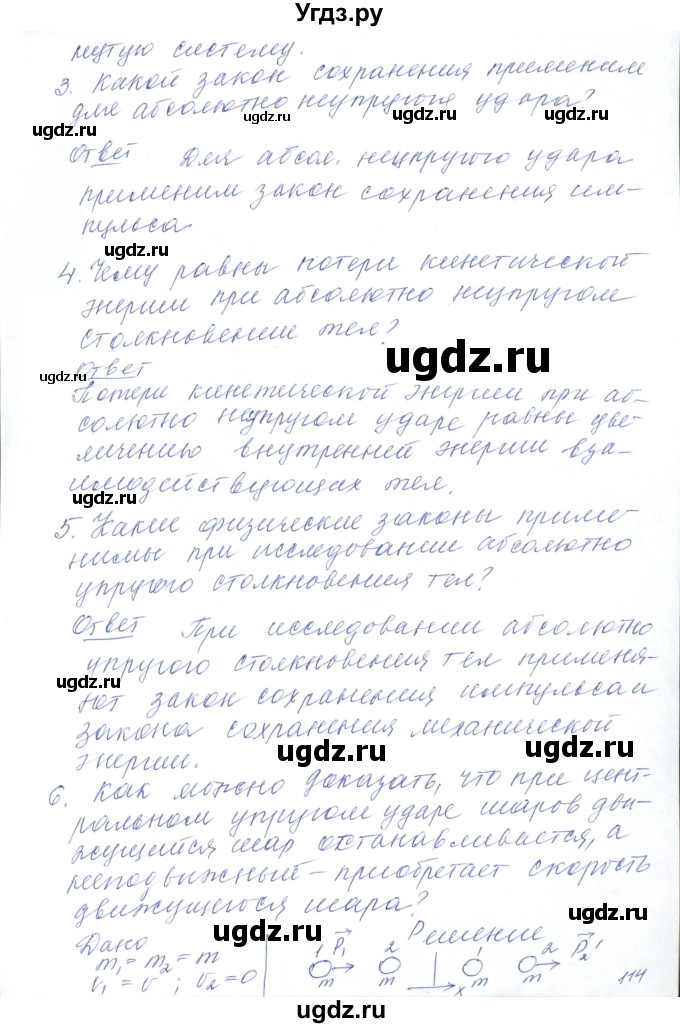 Угдз.ру
нутую систему.
3. Какой закон сохранения применим
для абсолютно неупругого удара?
ugdz.ru ugdz.ru ugdz.ru
Ответ Для абсол. неупругого удара
применим закон сохранения им-
пульса
ugdz.ru
4. Чему равны потери кинетической
энергии при абсолютно неупругом
столкновении тел?
ugdz.ru
Ответ
ugdz.ru
Потери кинетической энергии при аб-
солютно неупругом ударе равны уве-
личению внутренней энергии вза-
имодействующих тел.
ugdz.ru
5. Какие физические законы приме-
нимы при исследовании абсолютно
упругого столкновения тел?
Ответ При исследовании абсолютно
упругого столкновения тел применя-
ugdz.ru
ют закон сохранения импульса и
закона сохранения механической
ugdz.ru ugdz.ru
энергии.
6. Как можно доказать, что при цент-
ральном упругом ударе шаров дви-
жущийся шар останавливается, а
неподвижный – приобретает скорость
движущегося шара?
ugdz.ru
Дано Решение
m₁ = m₂ = m 1 P⃗₁ 2 1 2 P⃗₂'
v₁ = v ; v₂ = 0 m m x m m 114
ugdz.ru ugdz.ru